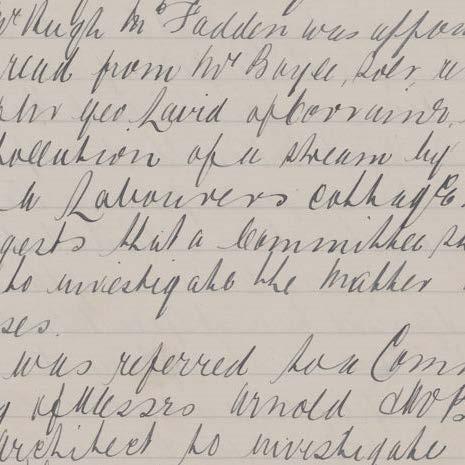 Mr Hugh McFadden was appoin
read from Mr Boyce, Solr, a
Mr Geo. Laird of Corrains,
pollution of a stream by
a Labourers cottage
gests that a Committee sh
to investigate the matter
ses.
was referred to a Comm
of Messrs Arnold
architect to investigate